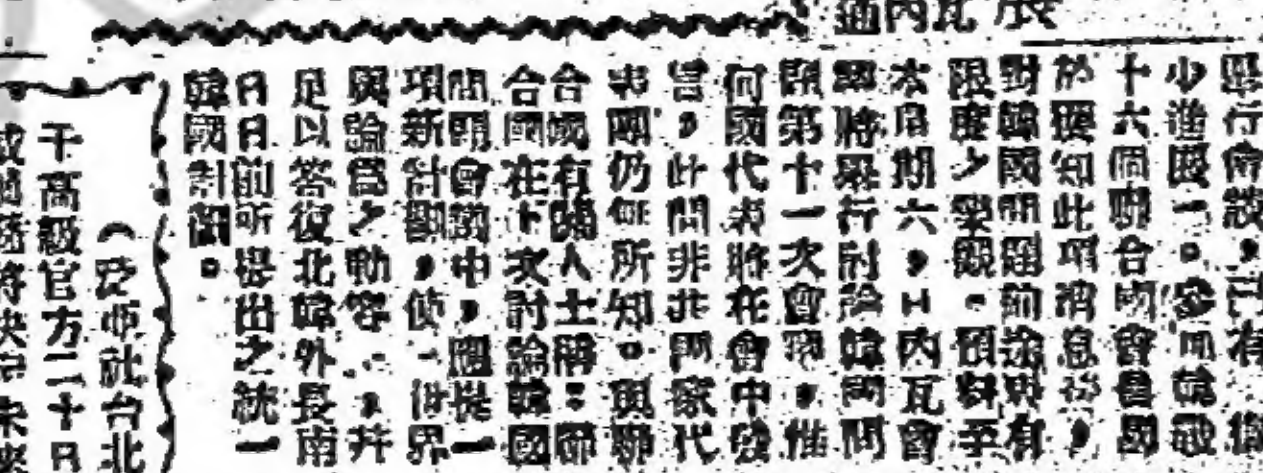 內瓦
行會談，已有
少進展一。參加韓戰
十六個聯合國會員國
於獲知此項消息後，
對韓國問題前途則有
限度之樂觀。預料
本星期六，日內瓦會
議將舉行討論韓國問
題第十一次會議，惟
何國代表將在會中發
言，此間非共國家代
表團仍無所知。與聯
合國有關人士稱：聯
合國在十次討論韓國
問題會議中，應提一
項新計劃，使世界
輿論為之動容，并
足以答復北韓外長南
日日前所提出之統一
韓國計劃。
（泛亞社台北
干高級官方二十日
將決定未來